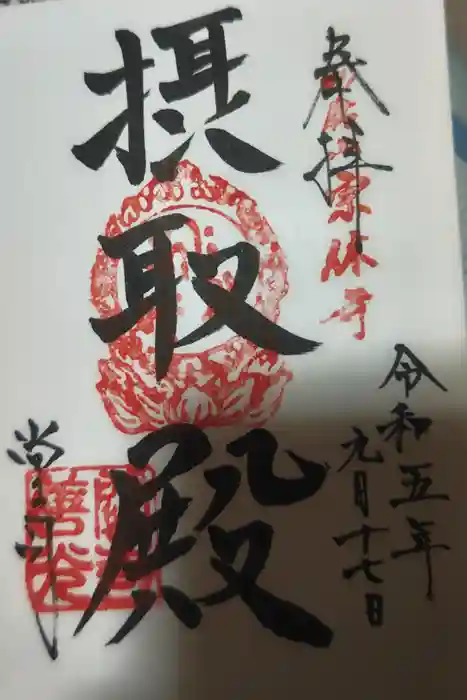 奉拝
宗休寺
令和五年
九月十七日
摂取殿